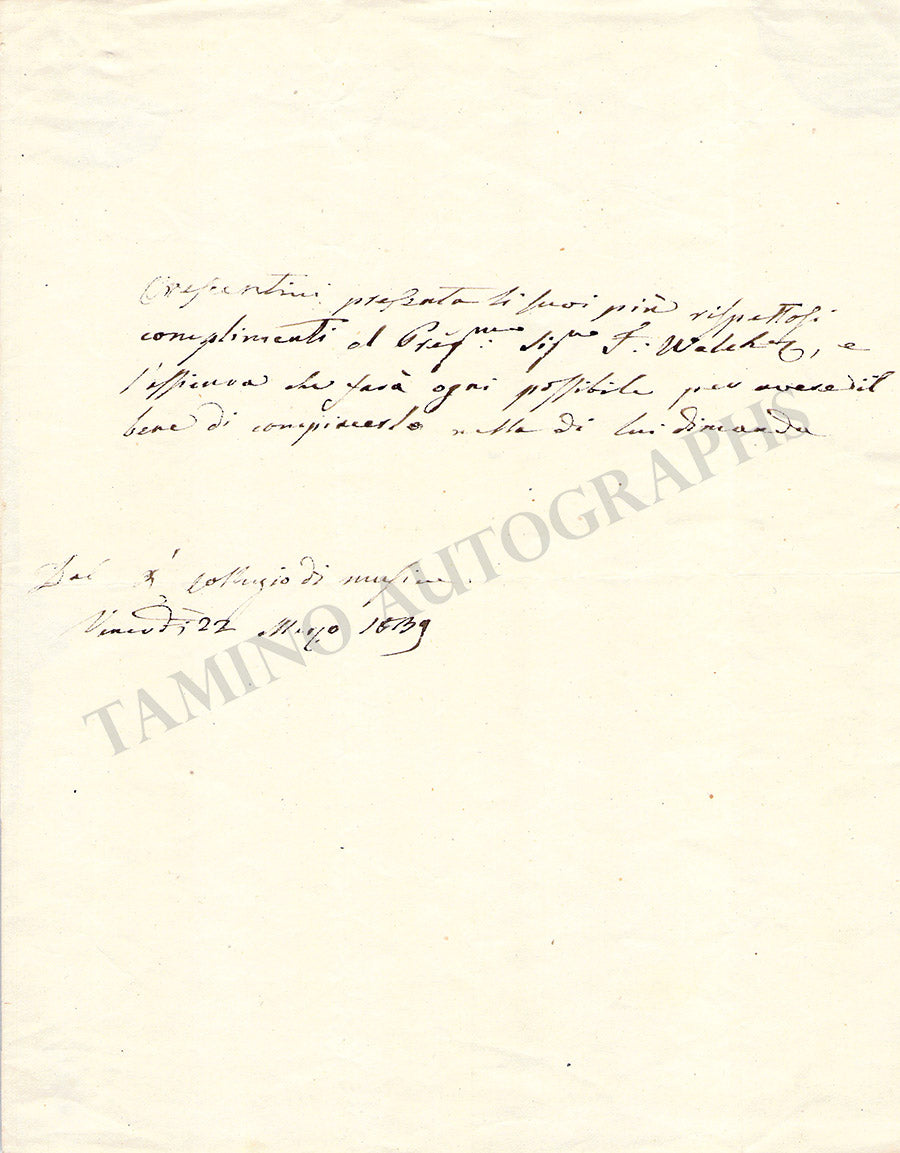 Crescentini presenta li suoi più rispettosi
complimenti al Preg.mo Sig.re F: Walcher, e
l'assicura che farà ogni possibile per avere il
bene di compiacerlo nella di lui dimanda
Dal R.l Collegio di musica.
Venerdì 22 Marzo 1839
TAMINO AUTOGRAPHS